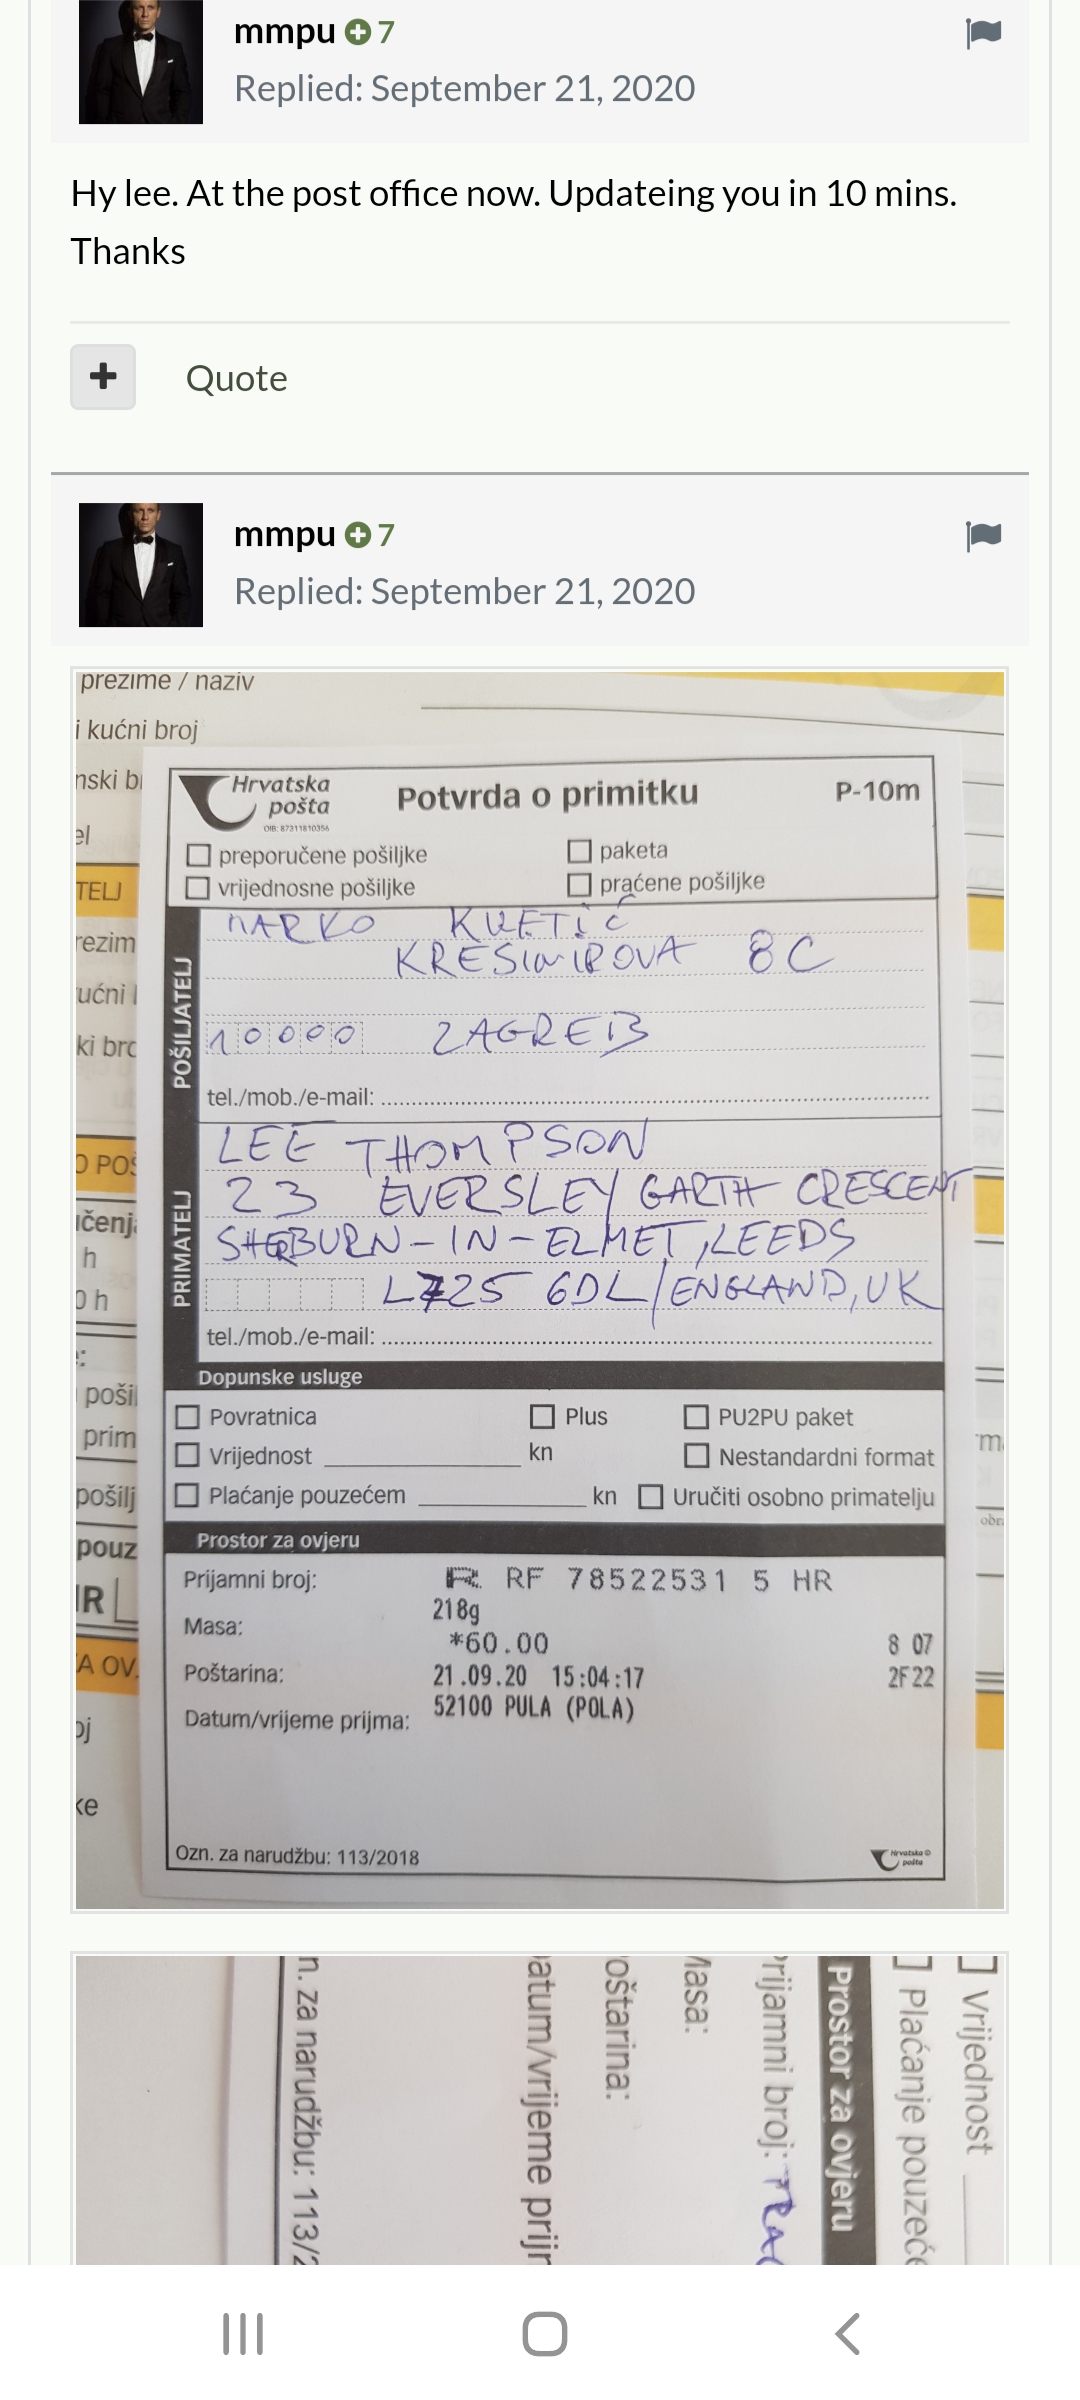 mmpu 7
Replied: September 21, 2020
Hy lee. At the post office now. Updateing you in 10 mins.
Thanks
Quote
mmpu 7
Replied: September 21, 2020
prezime / naziv
i kućni broj
nski b
el
TELJ
rezim
ućni
ki bro
O POŠ
učenj
h
0 h
poši
prim
pošilj
pouz
IR
A OV
oj
ke
Hrvatska
pošta
OIB: 87311810356
Potvrda o primitku
P-10m
preporučene pošiljke
paketa
vrijednosne pošiljke
praćene pošiljke
POŠILJATELJ
MARKO KVETIĆ
KRESIMIROVA 8C
10000 ZAGREB
tel./mob./e-mail:
PRIMATELJ
LEE THOMPSON
23 EVERSLEY GARTH CRESCENT
SHERBURN-IN-ELMET, LEEDS
LS25 6DL/ENGLAND, UK
tel./mob./e-mail:
Dopunske usluge
Povratnica
Plus
PU2PU paket
Vrijednost kn
Nestandardni format
Plaćanje pouzećem kn
Uručiti osobno primatelju
Prostor za ovjeru
Prijamni broj: R RF 78522531 5 HR
Masa: 218g
Poštarina: *60.00 8 07
Datum/vrijeme prijma: 21.09.20 15:04:17 2F22
52100 PULA (POLA)
Ozn. za narudžbu: 113/2018
Hrvatska
pošta
Vrijednost
Plaćanje pouzeć
Prostor za ovjeru
rijamni broj:
Masa:
oštarina:
atum/vrijeme prijm
n. za narudžbu: 113/2